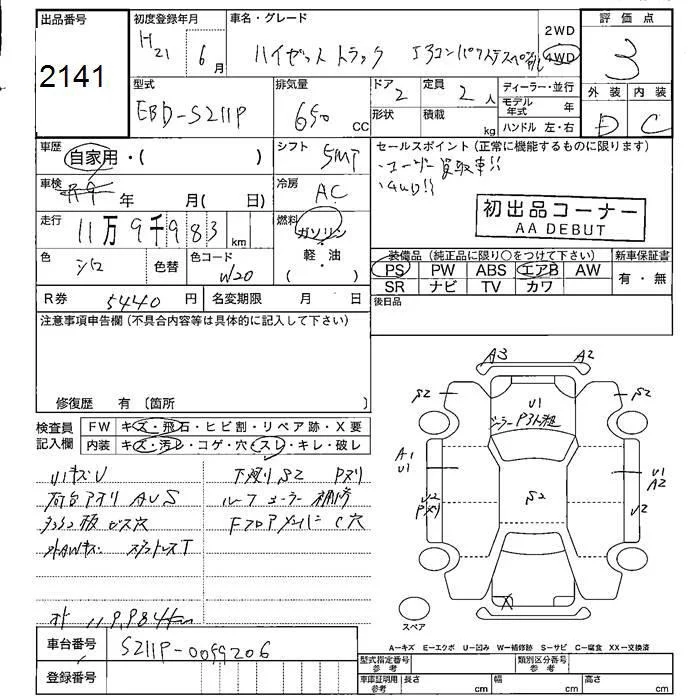 出品番号
2141
初度登録年月
H21 6月
車名・グレード
ハイゼット トラック
2WD
4WD
評価点
3
型式
EBD-S211P
排気量
650 CC
ドア
2
定員
2人
形状
積載
kg
ディーラー・並行
モデル年式 年
ハンドル 左・右
外装
内装
D
C
車歴
自家用・( )
シフト
5MT
車検
年 月( 日)
冷房
AC
走行
11万9千983 km
燃料
ガソリン
軽・油
( )
色
シロ
色替
色コード
W20
R券
5440円
名変期限 月 日
セールスポイント(正常に機能するものに限ります)
・ユーザー買取車!!
・4WD!!
初出品コーナー
AA DEBUT
装備品(純正品に限り○をつけて下さい)
新車保証書
PS PW ABS エアB AW
SR ナビ TV カワ
有・無
後日品
注意事項申告欄(不具合内容等は具体的に記入して下さい)
修復歴 有 〔箇所 〕
検査員記入欄
FW キズ・飛石・ヒビ割・リペア跡・X要
内装 キズ・汚レ・コゲ・穴・スレ・キレ・破レ
下廻りS2 Pヌリ
荷台アオリ AUS
ルーフ
C穴
スタットレスT
車台番号
S211P-0099206
登録番号
A3
A2
S2
S2
U1
A1
U1
U1
A2
S2
U2
Pヌリ
U2
X
スペア
A-キズ E-エクボ U-凹み W-補修跡 S-サビ C-腐食 XX-交換済
型式指定番号
参考
類別区分番号
参考
車庫証明用
参考
長さ cm
幅 cm
高さ cm